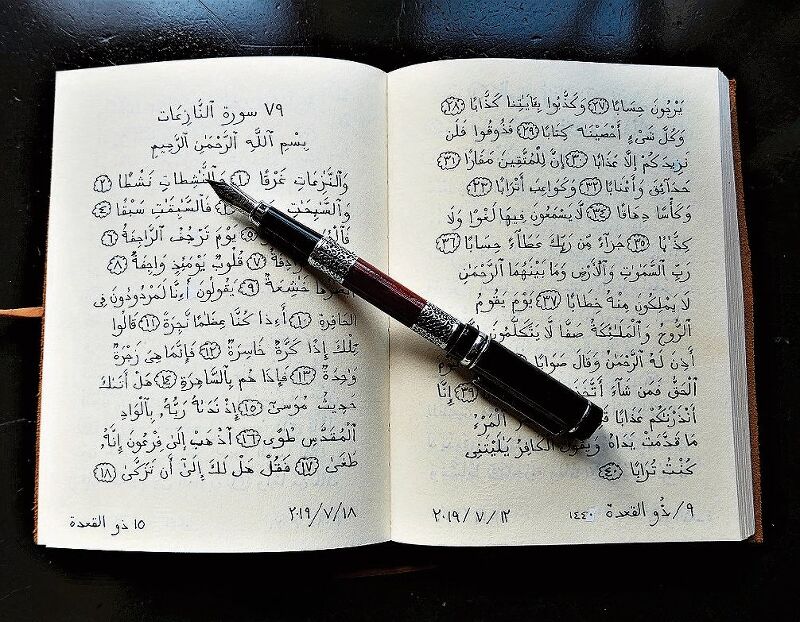 يَرْجُونَ حِسَابًا ٢٧ وَكَذَّبُوا بِـَٔايَٰتِنَا كِذَّابًا ٢٨
وَكُلَّ شَىْءٍ أَحْصَيْنَٰهُ كِتَابًا ٢٩ فَذُوقُوا فَلَن
نَزِيدَكُمْ إِلَّا عَذَابًا ٣٠ إِنَّ لِلْمُتَّقِينَ مَفَازًا ٣١
حَدَآئِقَ وَأَعْنَابًا ٣٢ وَكَوَاعِبَ أَتْرَابًا ٣٣
وَكَأْسًا دِهَاقًا ٣٤ لَّا يَسْمَعُونَ فِيهَا لَغْوًا وَلَا
كِذَّٰبًا ٣٥ جَزَآءً مِّن رَّبِّكَ عَطَآءً حِسَابًا ٣٦
رَبِّ ٱلسَّمَٰوَٰتِ وَٱلْأَرْضِ وَمَا بَيْنَهُمَا ٱلرَّحْمَٰنِ
لَا يَمْلِكُونَ مِنْهُ خِطَابًا ٣٧ يَوْمَ يَقُومُ
ٱلرُّوحُ وَٱلْمَلَٰٓئِكَةُ صَفًّا لَّا يَتَكَلَّمُونَ
أَذِنَ لَهُ ٱلرَّحْمَٰنُ وَقَالَ صَوَابًا
ٱلْحَقُّ فَمَن شَآءَ ٣٩ إِنَّا
أَنذَرْنَٰكُمْ عَذَابًا ٱلْمَرْءُ
مَا قَدَّمَتْ يَدَاهُ وَيَقُولُ ٱلْكَافِرُ يَٰلَيْتَنِى
كُنتُ تُرَابًا ٤٠
٩/ ذُو القعدة ١٤٤٠ ٢٠١٩/٧/١٢
٧٩ سورة ٱلنَّازِعَات
بِسْمِ ٱللَّهِ ٱلرَّحْمَٰنِ ٱلرَّحِيمِ
وَٱلنَّٰزِعَاتِ غَرْقًا ١ وَٱلنَّٰشِطَاتِ نَشْطًا ٢
وَٱلسَّٰبِحَٰتِ فَٱلسَّٰبِقَٰتِ سَبْقًا ٤
٥ يَوْمَ تَرْجُفُ ٱلرَّاجِفَةُ ٦
٧ قُلُوبٌ يَوْمَئِذٍ وَاجِفَةٌ ٨
خَٰشِعَةٌ ٩ يَقُولُونَ أَءِنَّا لَمَرْدُودُونَ فِى
ٱلْحَافِرَةِ ١٠ أَءِذَا كُنَّا عِظَٰمًا نَّخِرَةً ١١ قَالُوا
تِلْكَ إِذًا كَرَّةٌ خَاسِرَةٌ ١٢ فَإِنَّمَا هِىَ زَجْرَةٌ
وَٰحِدَةٌ ١٣ فَإِذَا هُم بِٱلسَّاهِرَةِ ١٤ هَلْ أَتَىٰكَ
حَدِيثُ مُوسَىٰٓ ١٥ إِذْ نَادَىٰهُ رَبُّهُ بِٱلْوَادِ
ٱلْمُقَدَّسِ طُوًى ١٦ ٱذْهَبْ إِلَىٰ فِرْعَوْنَ إِنَّهُ
طَغَىٰ ١٧ فَقُلْ هَل لَّكَ إِلَىٰٓ أَن تَزَكَّىٰ ١٨
٢٠١٩/٧/١٨ ١٥ ذو القعدة